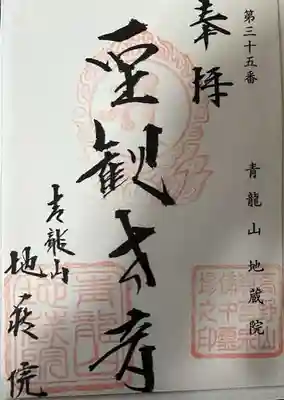 第三十五番　青龍山地蔵院
奉拝
聖観世音
青龍山
地蔵院